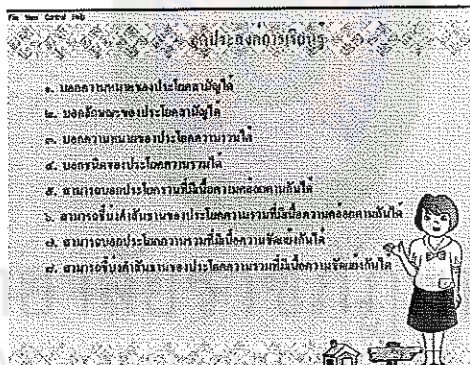 File View Control Help
จุดประสงค์การเรียนรู้
๑. บอกความหมายของประโยคสามัญได้
๒. บอกลักษณะของประโยคสามัญได้
๓. บอกความหมายของประโยคความรวมได้
๔. บอกชนิดของประโยคความรวมได้
๕. สามารถบอกประโยครวมที่มีเนื้อความคล้อยตามกันได้
๖. สามารถชี้บ่งคำสันธานของประโยคความรวมที่มีเนื้อความคล้อยตามกันได้
๗. สามารถบอกประโยคความรวมที่มีเนื้อความขัดแย้งกันได้
๘. สามารถชี้บ่งคำสันธานของประโยคความรวมที่มีเนื้อความขัดแย้งกันได้